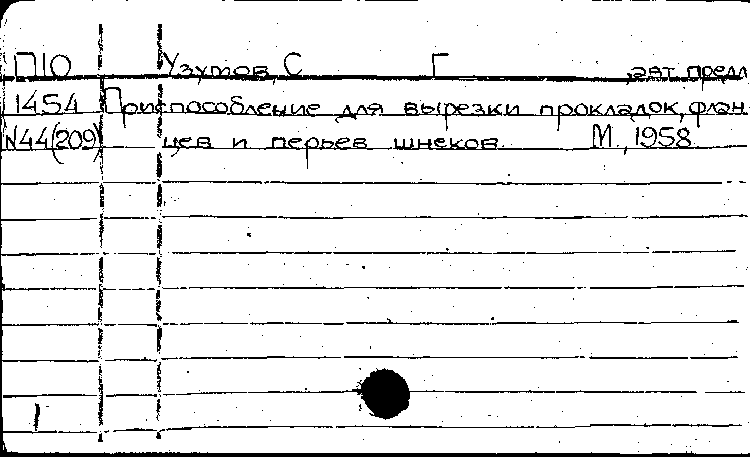 П10 Узутов, С Г ,авт. предл
1454 Приспособление для вырезки прокладок, флан-
N44(209) цев и перьев шнеков. М., 1958
1